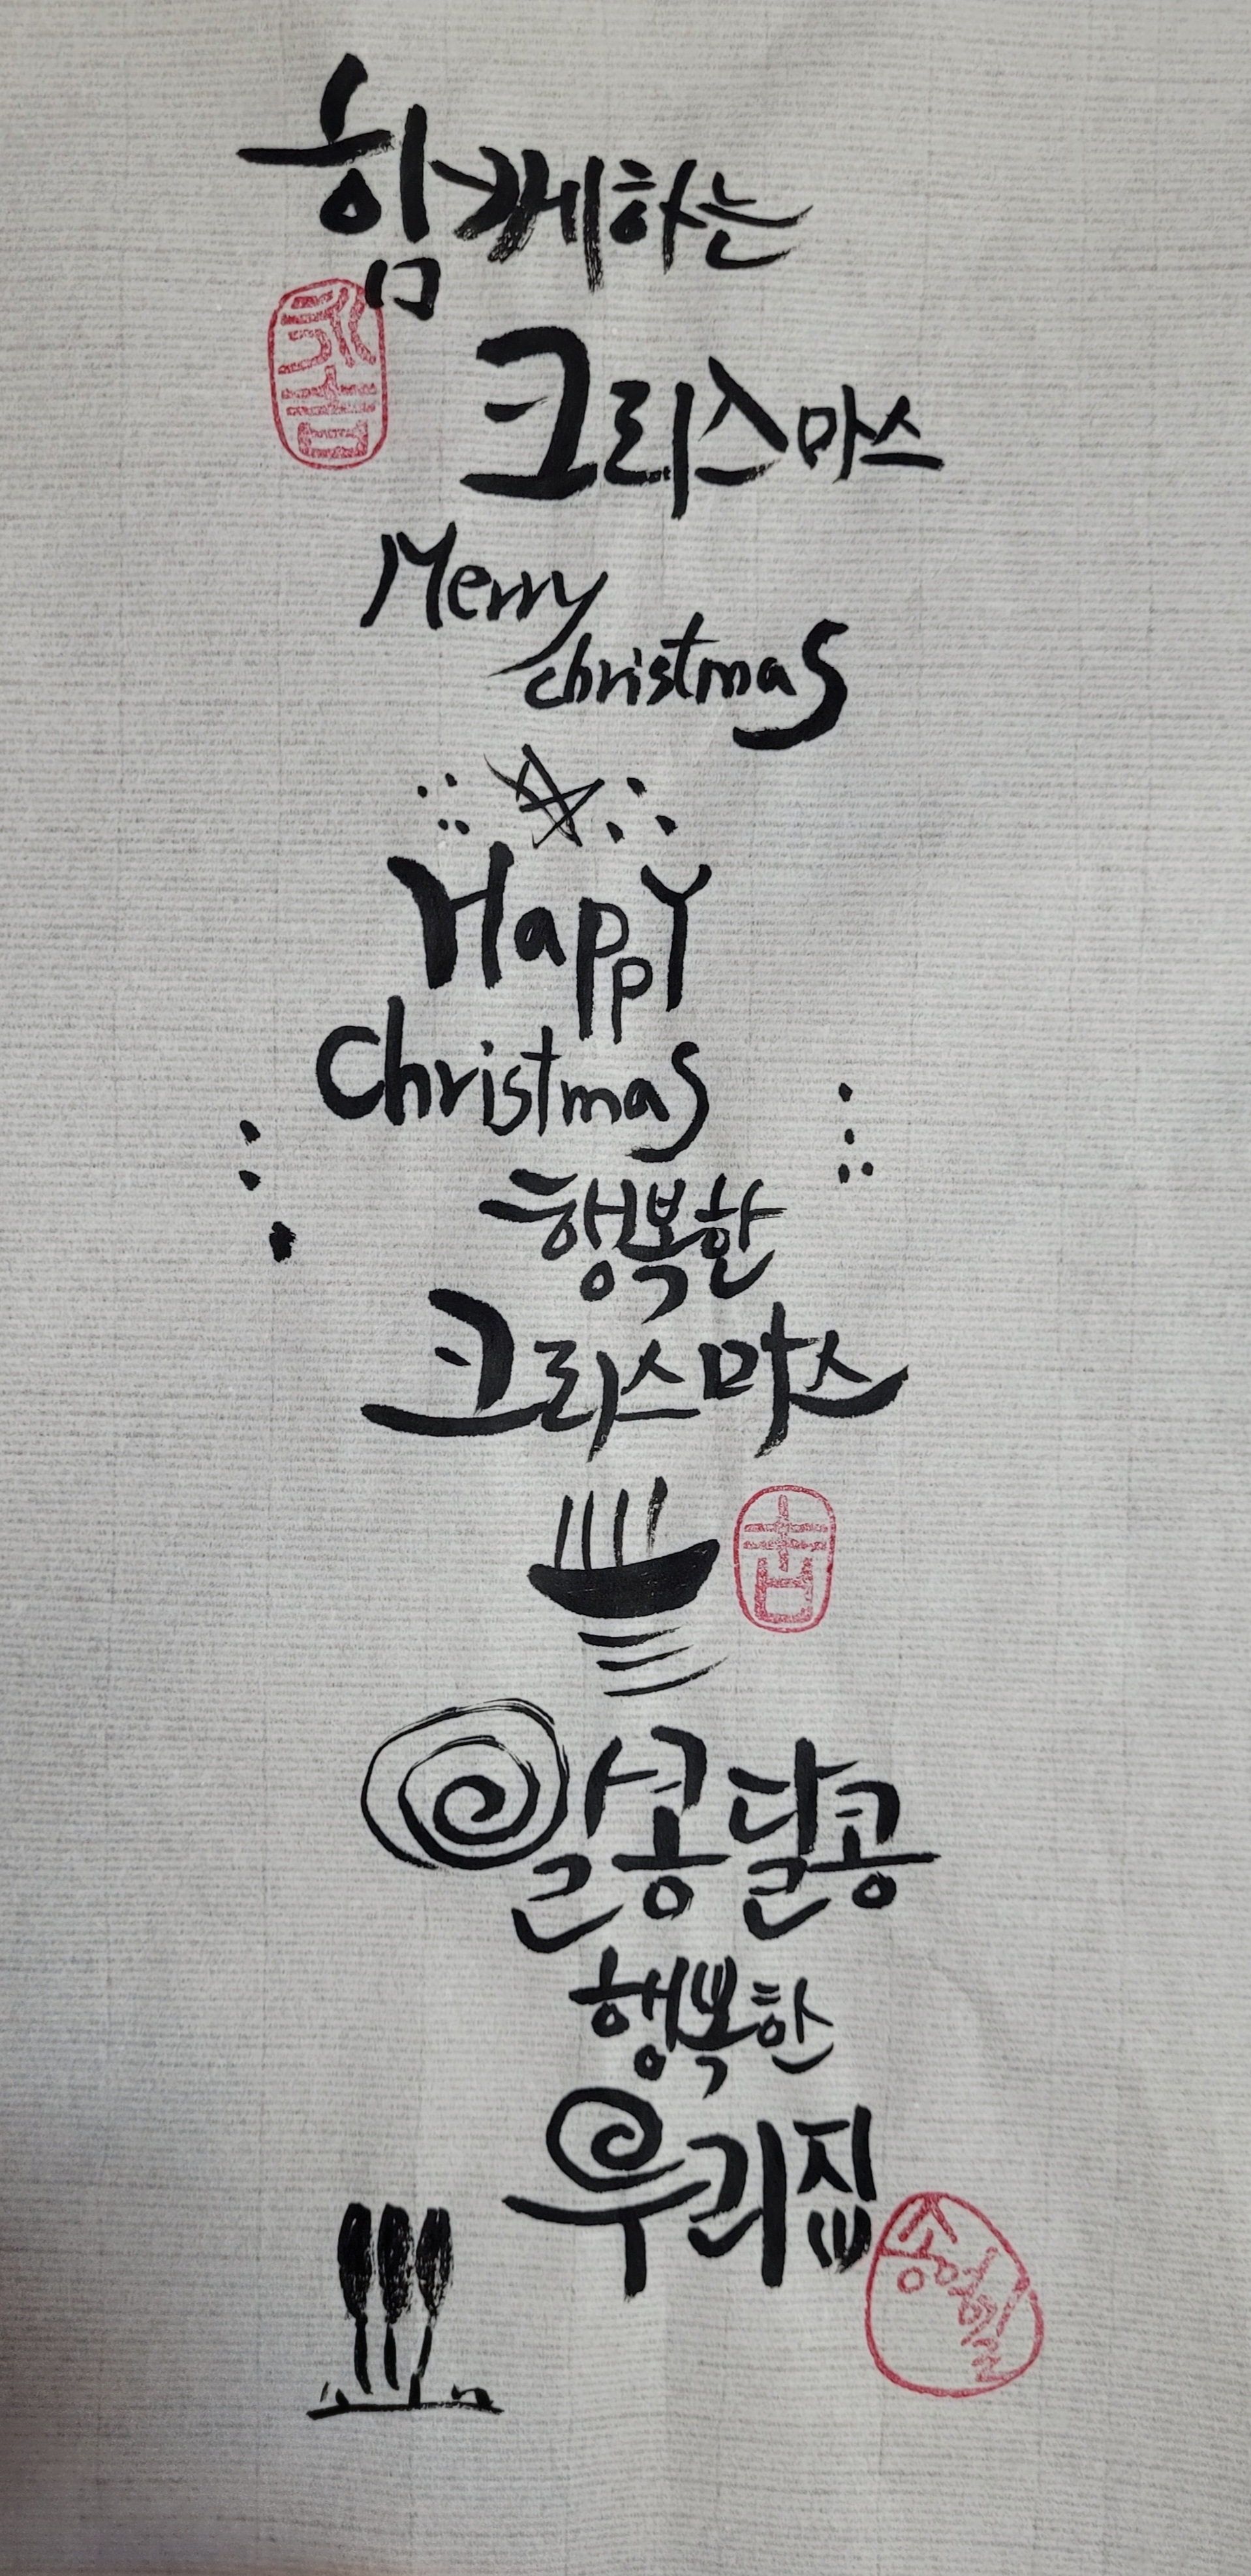 함께하는
크리스마스
Merry
christmas
Happy
Christmas
행복한
크리스마스
알콩달콩
행복한
우리집
송영길